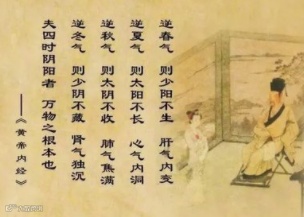 逆春气 则少阳不生 肝气内变
逆夏气 则太阳不长 心气内洞
逆秋气 则太阴不收 肺气焦满
逆冬气 则少阴不藏 肾气独沉
夫四时阴阳者 万物之根本也
——《黄帝内经》